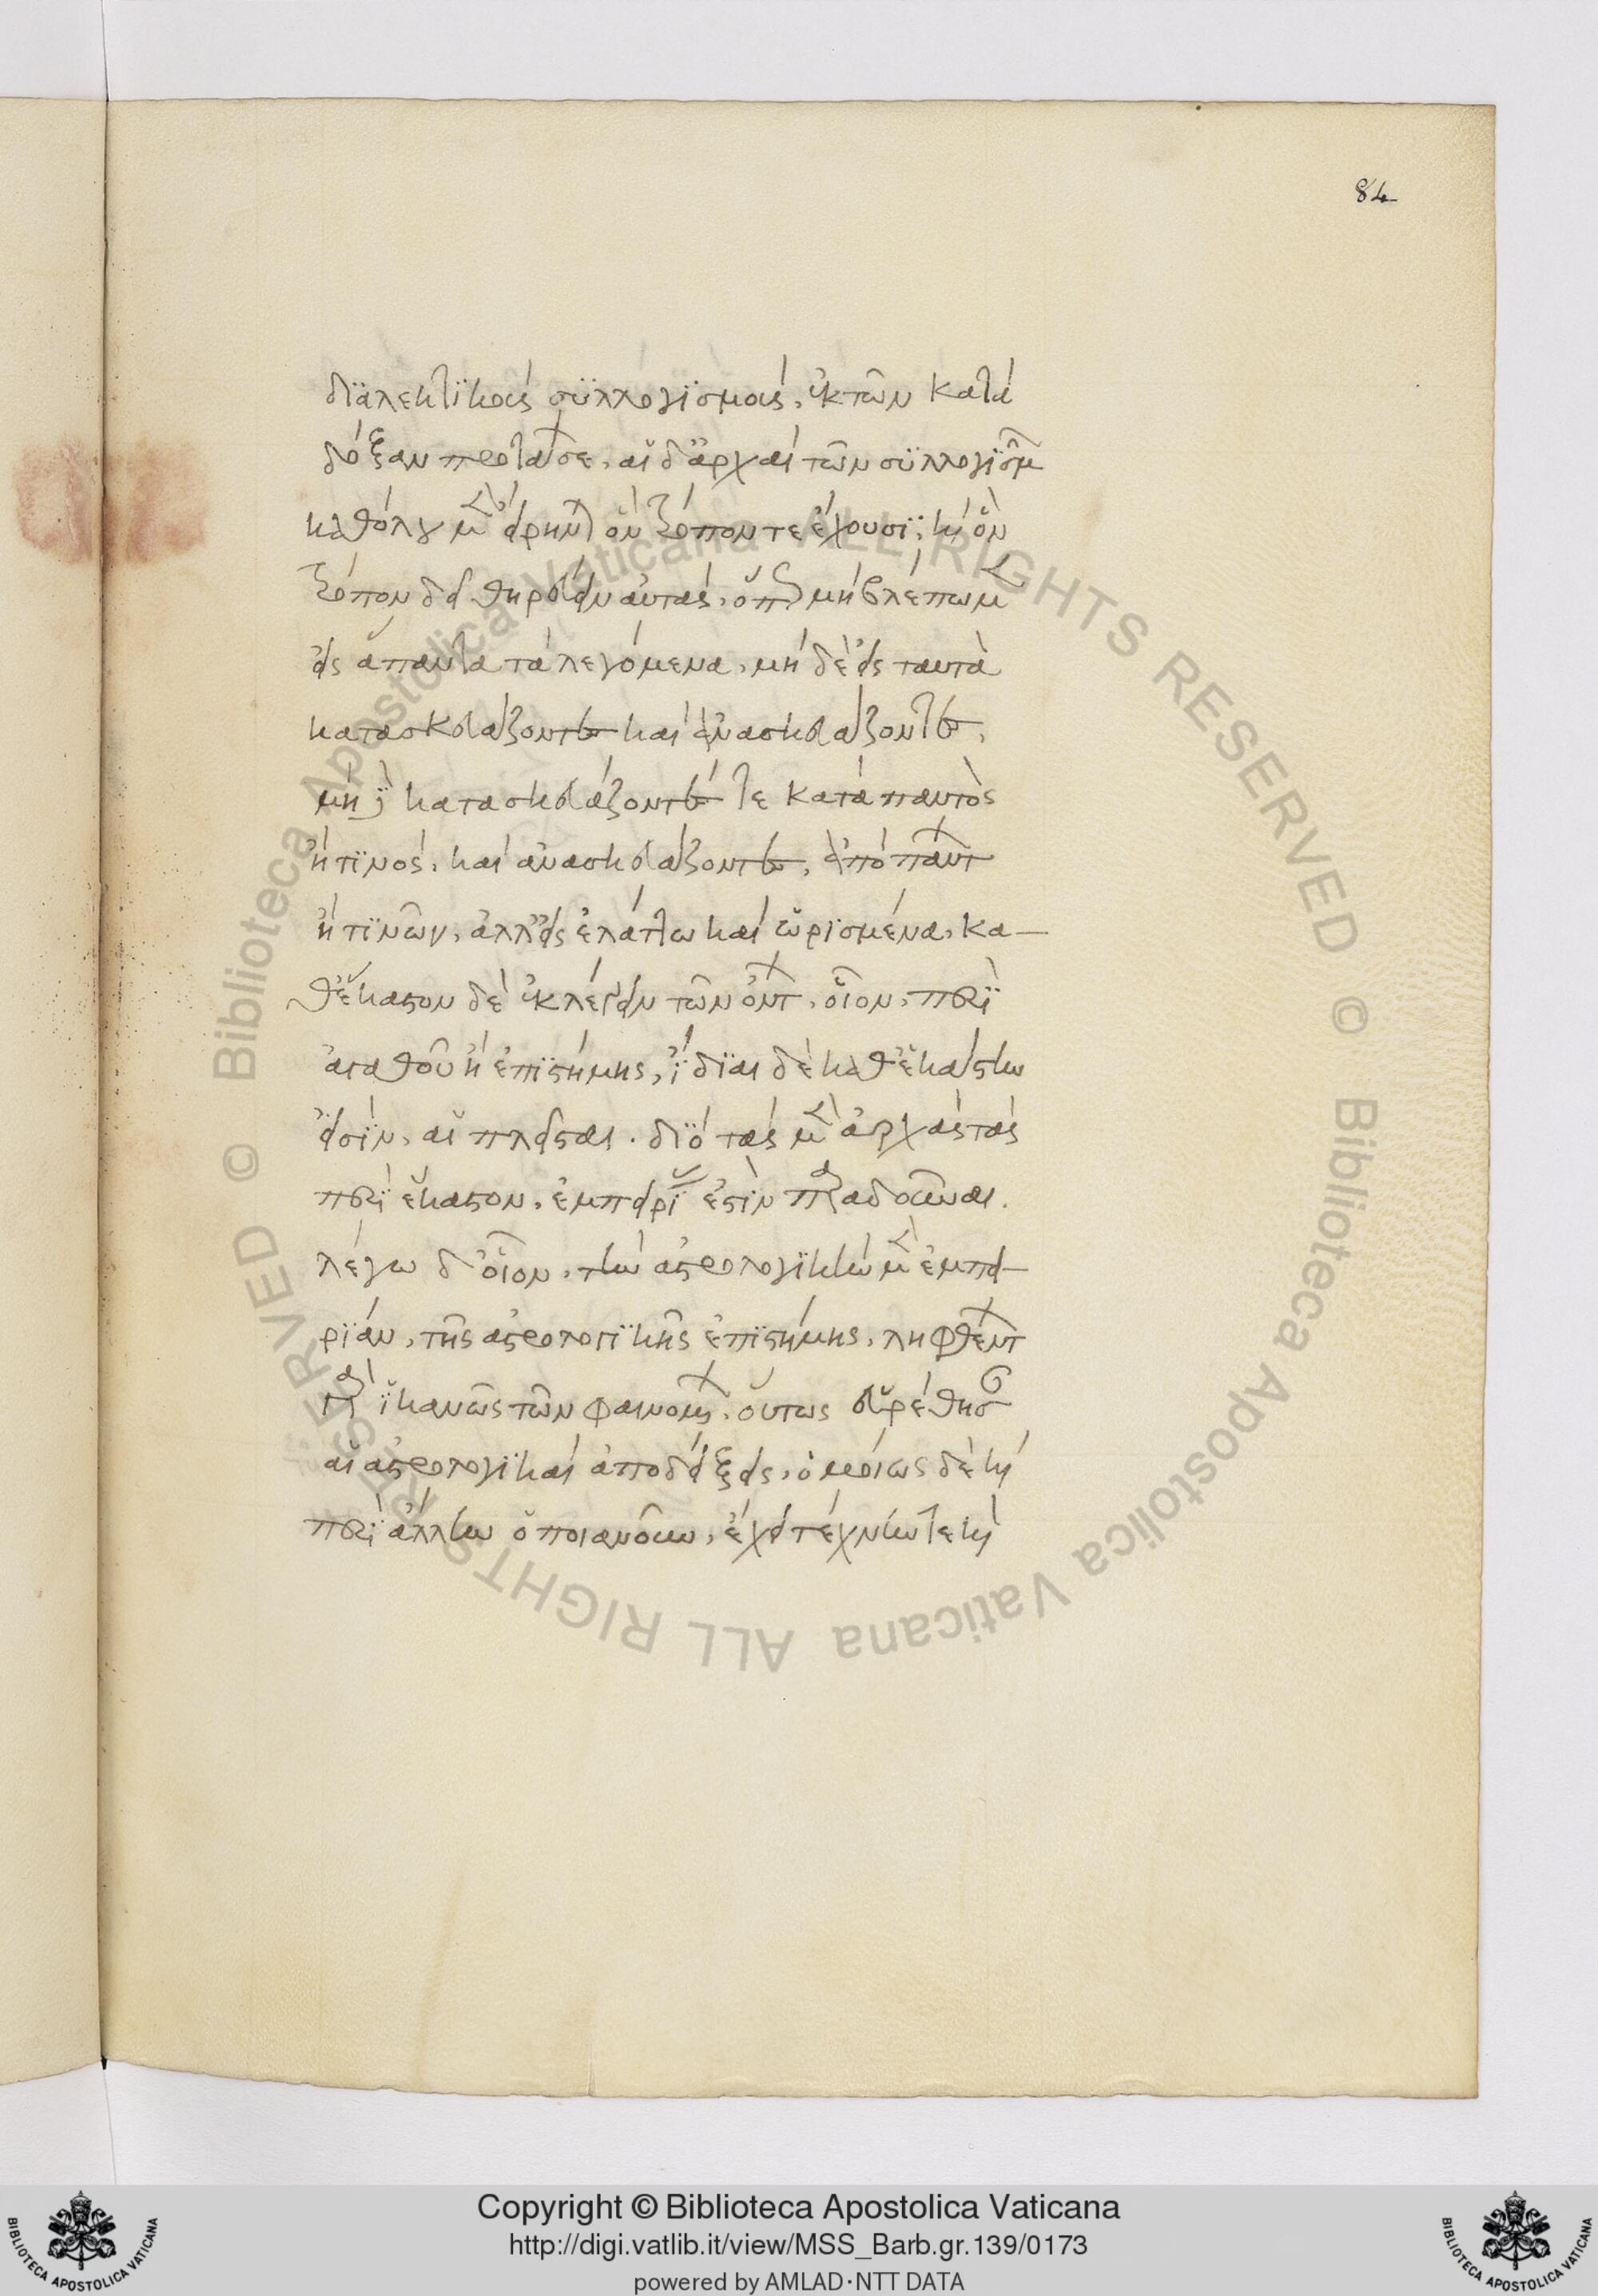 84
διαλεκτικοὺς συλλογισμοὺς, ἐκ τῶν κατὰ
δόξαν προτάσεων. αἱ δ' ἀρχαὶ τῶν συλλογισμῶν
καθόλου μὲν εἴρηνται ὃν τρόπον τε ἔχουσι, καὶ ὃν
τρόπον δεῖ θηρεύειν αὐτὰς, ὅπως μὴ βλέπωμεν
εἰς ἅπαντα τὰ λεγόμενα, μὴ δὲ εἰς ταυτὰ
κατασκευάζοντες καὶ ἀνασκευάζοντες,
μὴ δὲ κατασκευάζοντές τε κατὰ παντὸς
ἢ τινὸς, καὶ ἀνασκευάζοντες, ἀπὸ πάντων
ἢ τινῶν, ἀλλ' εἰς ἐλάττω καὶ ὡρισμένα, κα-
θ' ἕκαστον δὲ ἐκλέγειν τῶν ὄντων, οἷον, περὶ
ἀγαθοῦ ἢ ἐπιστήμης, ἴδιαι δὲ καθ' ἑκάστην
εἰσὶν, αἱ πλεῖσται. διὸ τὰς μὲν ἀρχὰς τὰς
περὶ ἕκαστον, ἐμπειρίας ἐστὶν παραδοῦναι.
λέγω δ' οἷον, τὴν ἀστρολογικὴν μὲν ἐμπει-
ρίαν, τῆς ἀστρολογικῆς ἐπιστήμης, ληφθέντων
γὰρ ἱκανῶς τῶν φαινομένων, οὕτως εὑρέθησαν
αἱ ἀστρολογικαὶ ἀποδείξεις, ὁμοίως δὲ καὶ
περὶ ἄλλην ὁποιανοῦν, ἔχει τέχνην τε καὶ
Copyright © Biblioteca Apostolica Vaticana
http://digi.vatlib.it/view/MSS_Barb.gr.139/0173
powered by AMLAD·NTT DATA
BIBLIOTECA APOSTOLICA VATICANA
BIBLIOTECA APOSTOLICA VATICANA
© Biblioteca Apostolica Vaticana ALL RIGHTS RESERVED © Biblioteca Apostolica Vaticana ALL RIGHTS RESERVED